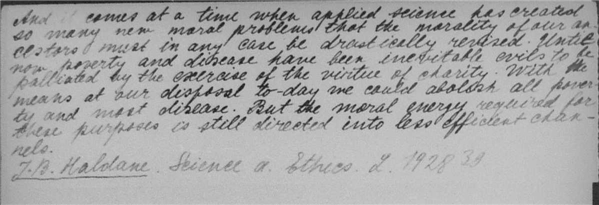 And it comes at a time when applied science has created
so many new moral problems that the morality of our an-
cestors must in any case be drastically revised. Until
now poverty and disease have been inevitable evils to be
palliated by the exercise of the virtue of charity. With the
means at our disposal to-day we could abolish all pover-
ty and most disease. But the moral energy required for
these purposes is still directed into less efficient chan-
nels.
J.B. Haldane. Science a. Ethics. L. 1928 39